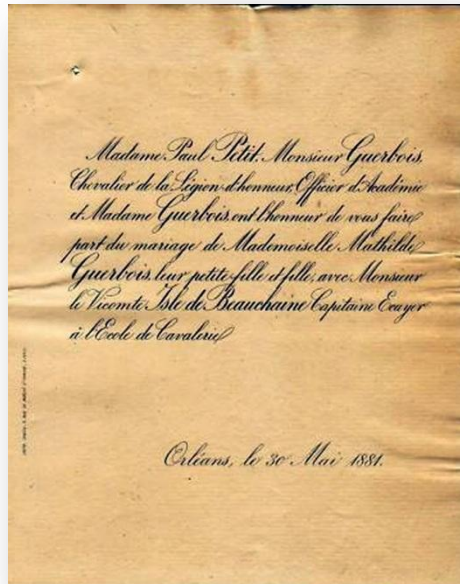 Madame Paul Petit, Monsieur Guerbois,
Chevalier de la Légion d'honneur, Officier d'Académie
et Madame Guerbois, ont l'honneur de vous faire
part du mariage de Mademoiselle Mathilde
Guerbois, leur petite-fille et fille, avec Monsieur
le Vicomte Isle de Beauchaine Capitaine Ecuyer
à l'Ecole de Cavalerie
Orléans, le 30 Mai 1881.